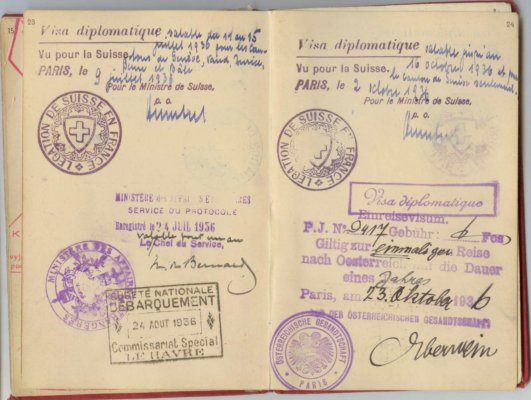 23
Visa diplomatique valable du 11 au 15
juillet 1936 pour les can-
Vu pour la Suisse.
tons de Genève, Vaud,
Berne et Bâle
PARIS, le 9 juillet 1936
Pour le Ministre de Suisse,
p. o.
LEGATION DE SUISSE EN FRANCE
MINISTÈRE DES AFFAIRES ETRANGERES
SERVICE DU PROTOCOLE
Enregistré le 24 JUIL 1936
valable pour un an
Le Chef du Service,
MINISTÈRE DES AFFAIRES ETRANGERES
SURETÉ NATIONALE
DÉBARQUEMENT
24 AOUT 1936
Commissariat Spécial
LE HAVRE
24
Visa diplomatique valable jusqu'au
16 octobre 1936 et pour
Vu pour la Suisse.
le canton de Genève seulement.
PARIS, le 2 octobre 1936
Pour le Ministre de Suisse,
p. o.
LEGATION DE SUISSE EN FRANCE
Visa diplomatique
Einreisevisum.
P. J. Nº 9417 Gebühr: Fcs
Giltig zur einmaligen Reise
nach Oesterreich auf die Dauer
eines Jahres
Paris, am 23. Oktober 1936
DER ÖSTERREICHISCHEN GESANDTSCHAFT
ÖSTERREICHISCHE GESANDTSCHAFT
PARIS